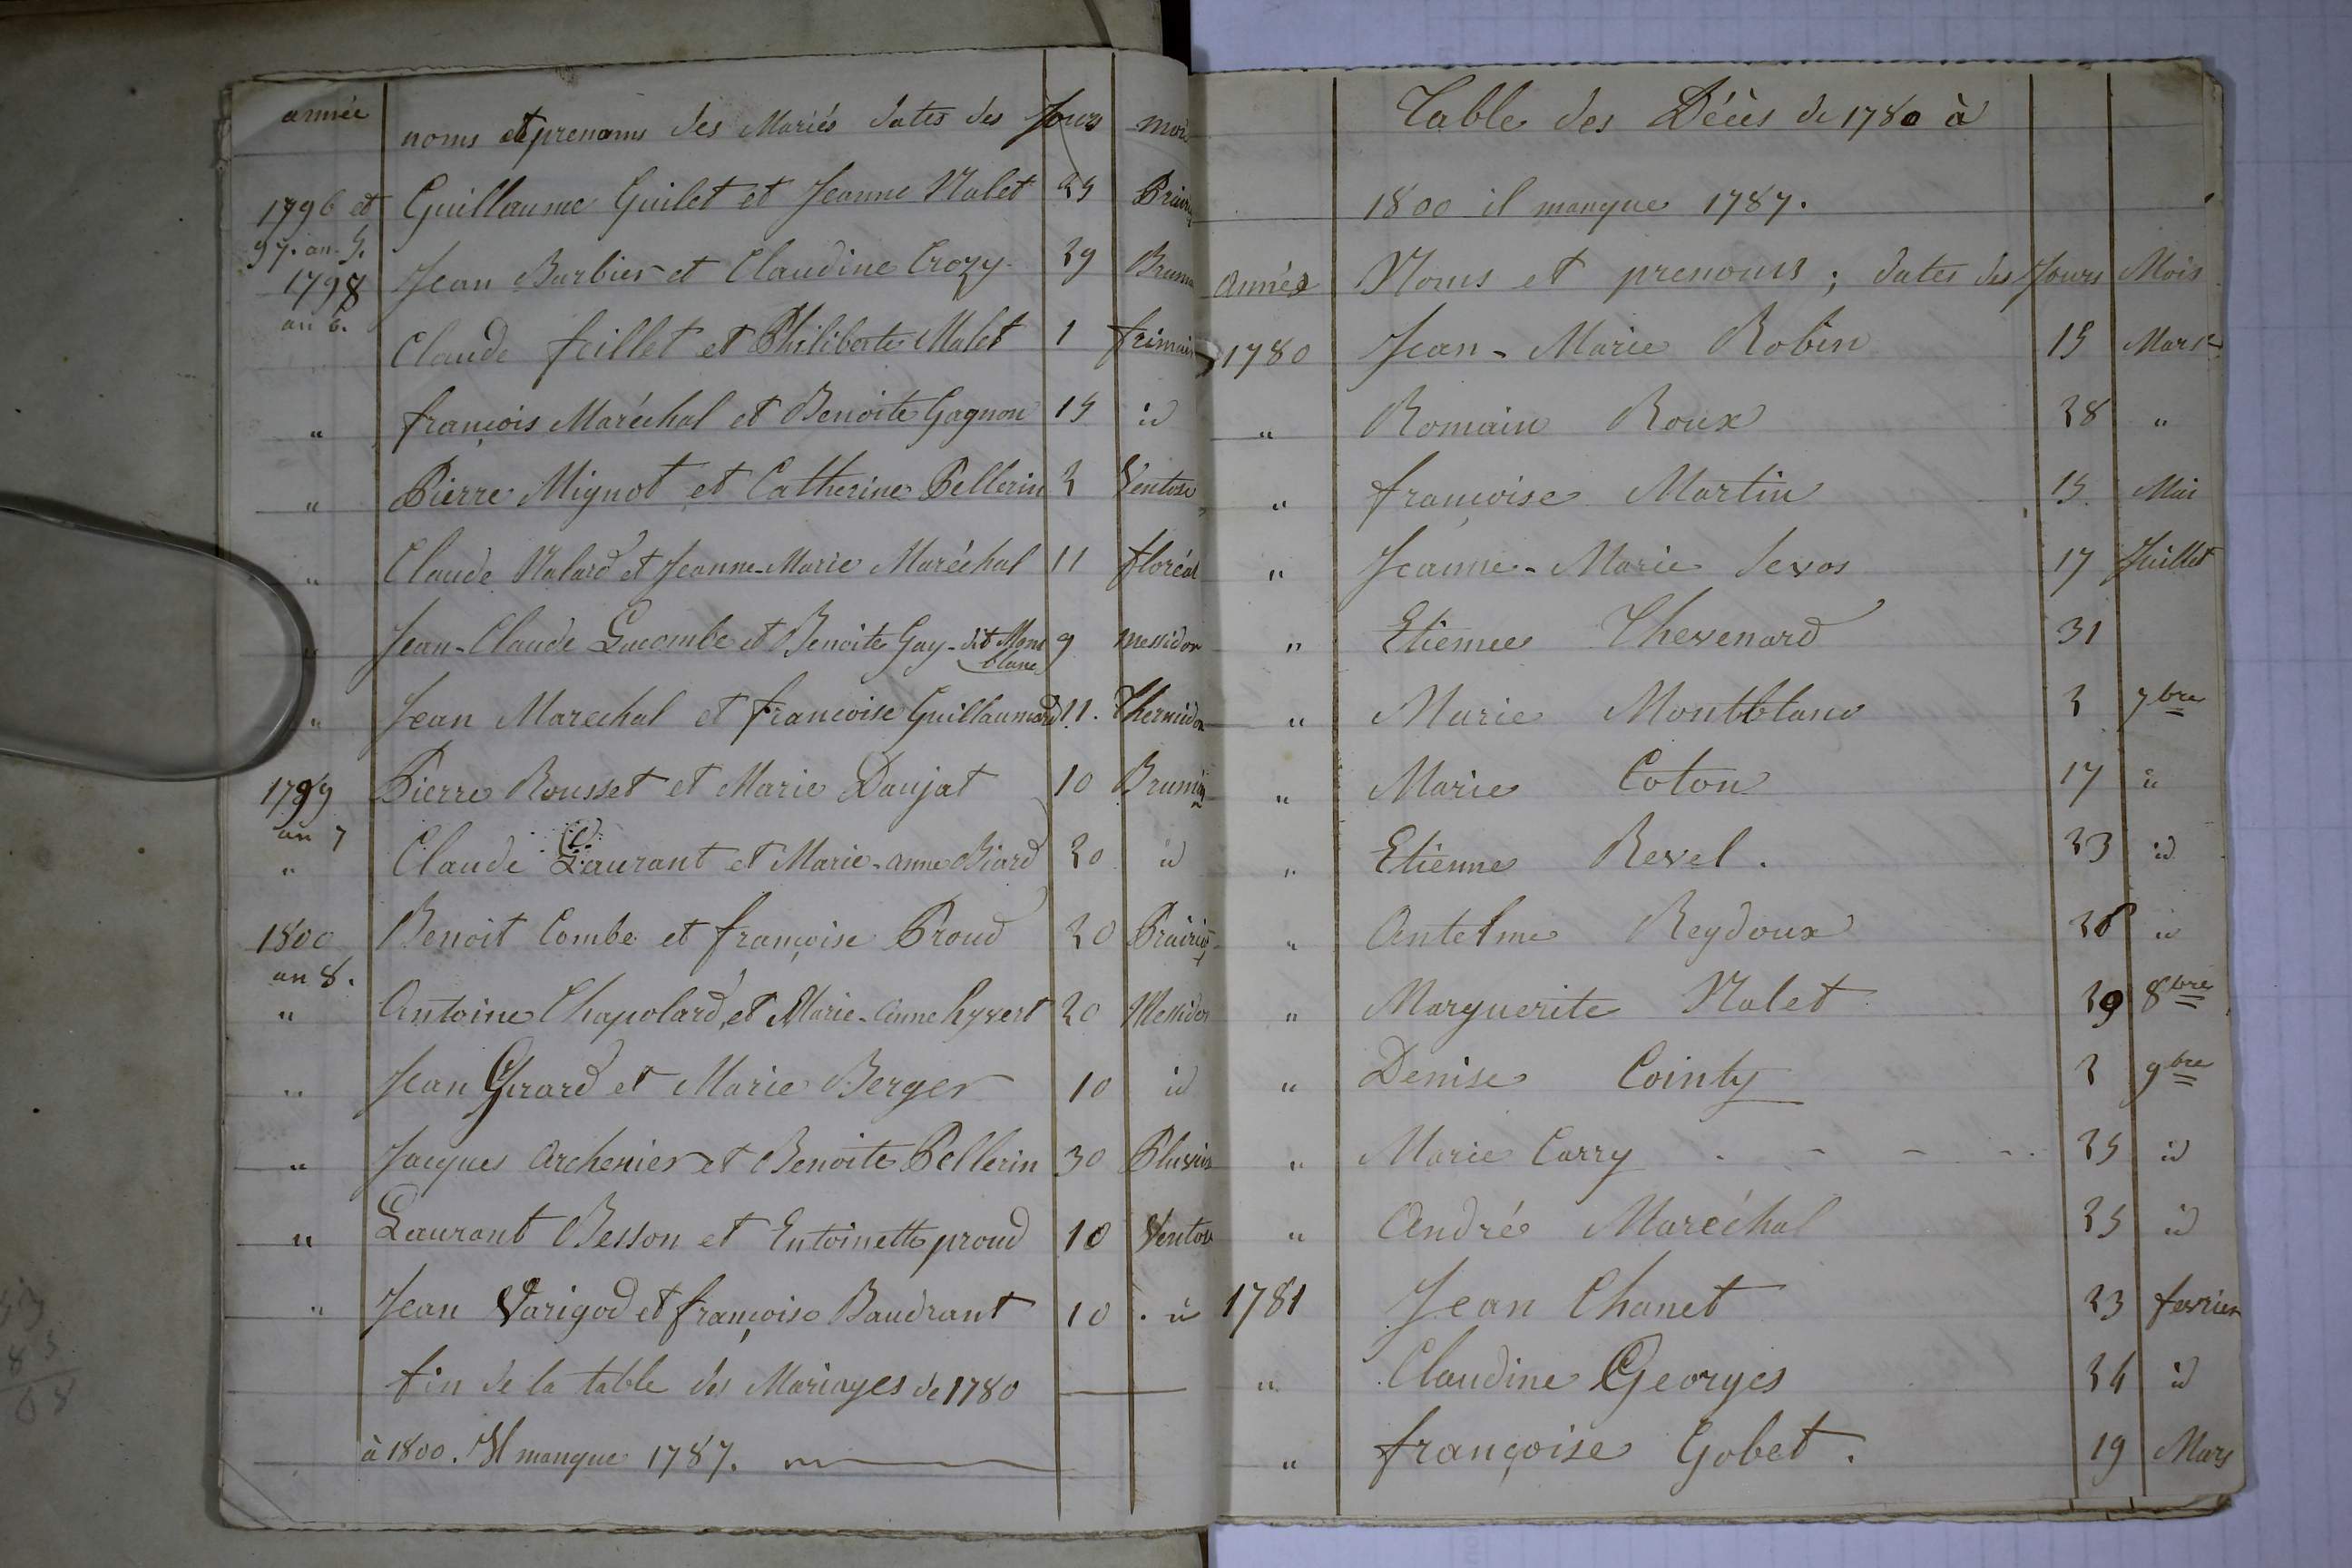 année noms et prenoms des Mariés dates des Jours mois
1796 et Guillaume Guilet et Jeanne Nalet 25 Prairial
97. an. 5.
1798 Jean Barbier et Claudine Crozy 29 Bruma
an 6.
Claude feillet et Philiberte Malet 1 frimair
" françois Maréchal et Benoite Gagnon 15 id
" Pierre Mignot et Catherine Pellerin 2 Ventose
" Claude Nalard et Jeanne-Marie Maréchal 11 floréal
" Jean-Claude Lacombe et Benoite Guy-dit Mont 9 messidor
blanc
" Jean Marechal et francoise Guillaumard 11. Thermidor
1799 Pierre Rousset et Marie Daujat 10 Brumaire
an 7
" Claude Laurant et Marie-anne Biard 20 id
1800 Benoit Combe et françoise Proud 20 Prairial
an 8.
" Antoine Chapolard, et Marie-anne hyvert 20 Messidor
" Jean Girard et Marie Berger 10 id
" Jacques Archenier et Benoite Pellerin 30 Pluvios
" Laurant Besson et Entoinette proud 10 Ventos
" Jean Varigod et françoise Baudrant 10 . id
fin de la table des Mariages de 1780
à 1800. Il manque 1787.
Table des Décès de 1780 à
1800 il manque 1787.
Année Noms et prenoms ; dates des Jours Mois
1780 Jean-Marie Robin 15 Mars
" Romain Roux 28 "
" françoise Martin 15 Mai
" Jeanne-Marie devos 17 Juillet
" Etienne Thevenard 31
" Marie Montblanc 2 7bre
" Marie Coton 17 id
" Etienne Revel. 23 id
" Antelme Reydoux 28 id
" Marguerite Nalet 29 8bre
" Denise Cointy 2 9bre
" Marie Carry . - - - . 25 id
" André Maréchal 25 id
1781 Jean Chanet 23 fevrier
" Claudine Georges 24 id
" françoise Gobet. 19 Mars